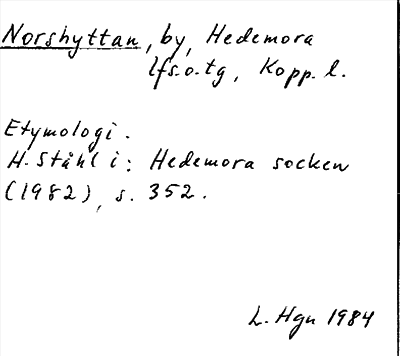 Norshyttan, by, Hedemora
lfs.o.tg, Kopp. l.
Etymologi.
H. Ståhl i: Hedemora socken
(1982), s. 352.
L. Hgn 1984